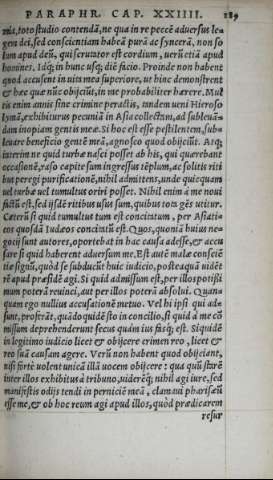 PARAPHR. CAP. XXIIII. 289
mia, toto studio contendā, ne qua in re peccē aduersus le⸗
gem dei, sed conscientiam habeā purā ac syncerā, non so
lum apud deū, qui scrutator est cordium, uerū etiā apud
homines, Idq́; in hunc usq́; diē facio. Proinde non habent
quod accusent in uita mea superiore, ut hinc demonstrent
& hæc quæ nūc obijciūt, in me probabiliter hærere. Mul
tis enim annis sine crimine peractis, tandem ueni Hieroso
lymā, exhibiturus pecuniā in Asia collectam, ad subleuā⸗
dam inopiam gentis meæ. Si hoc est esse pestilentem, sub⸗
leuare beneficio gentē meā, agnosco quod obijciūt. Atq́;
interim ne quid turbæ nasci posset ab his, qui quærebant
occasionē, raso capite sum ingressus tēplum, ac solitis riti
bus peregi purificationē, nihil admittens, unde quicquam
uel turbæ uel tumultus oriri posset. Nihil enim à me noui
factū est, sed ijsdē ritibus usus sum, quibus tota gēs utitur.
Cæterū si quid tumultus tum est concitatum, per Asiati⸗
cos quosdā Iudæos concitatū est. Quos, quoniā huius ne⸗
gocij sunt autores, oportebat in hac causa adesse, & accu
sare si quid haberent aduersum me. Est autē malæ consciē
tiæ signū, quòd se subducūt huic iudicio, posteaquā uidēt
rē apud præsidē agi. Si quid admissum est, per illos potissi
mum poterā reuinci, aut per illos poterā absolui. Quan⸗
quam ego nullius accusationē metuo. Vel hi ipsi qui ade
sunt, proferāt, quādoquidē sto in concilio, si quid à me cō
missum deprehenderunt secus quàm ius fásq́; est. Siquidē
in legitimo iudicio licet & obijcere crimen reo, licet &
reo suā causam agere. Verū non habent quod obijciant,
nisi fortè uolent unicā illā uocem obijcere: qua quū starē
inter illos exhibitus à tribuno, uiderēq́; nihil agi iure, sed
manifestis odijs tendi in perniciē meā, clamaui pharisæū
esse me, & ob hoc reum agi apud illos, quòd prædicarem
resur